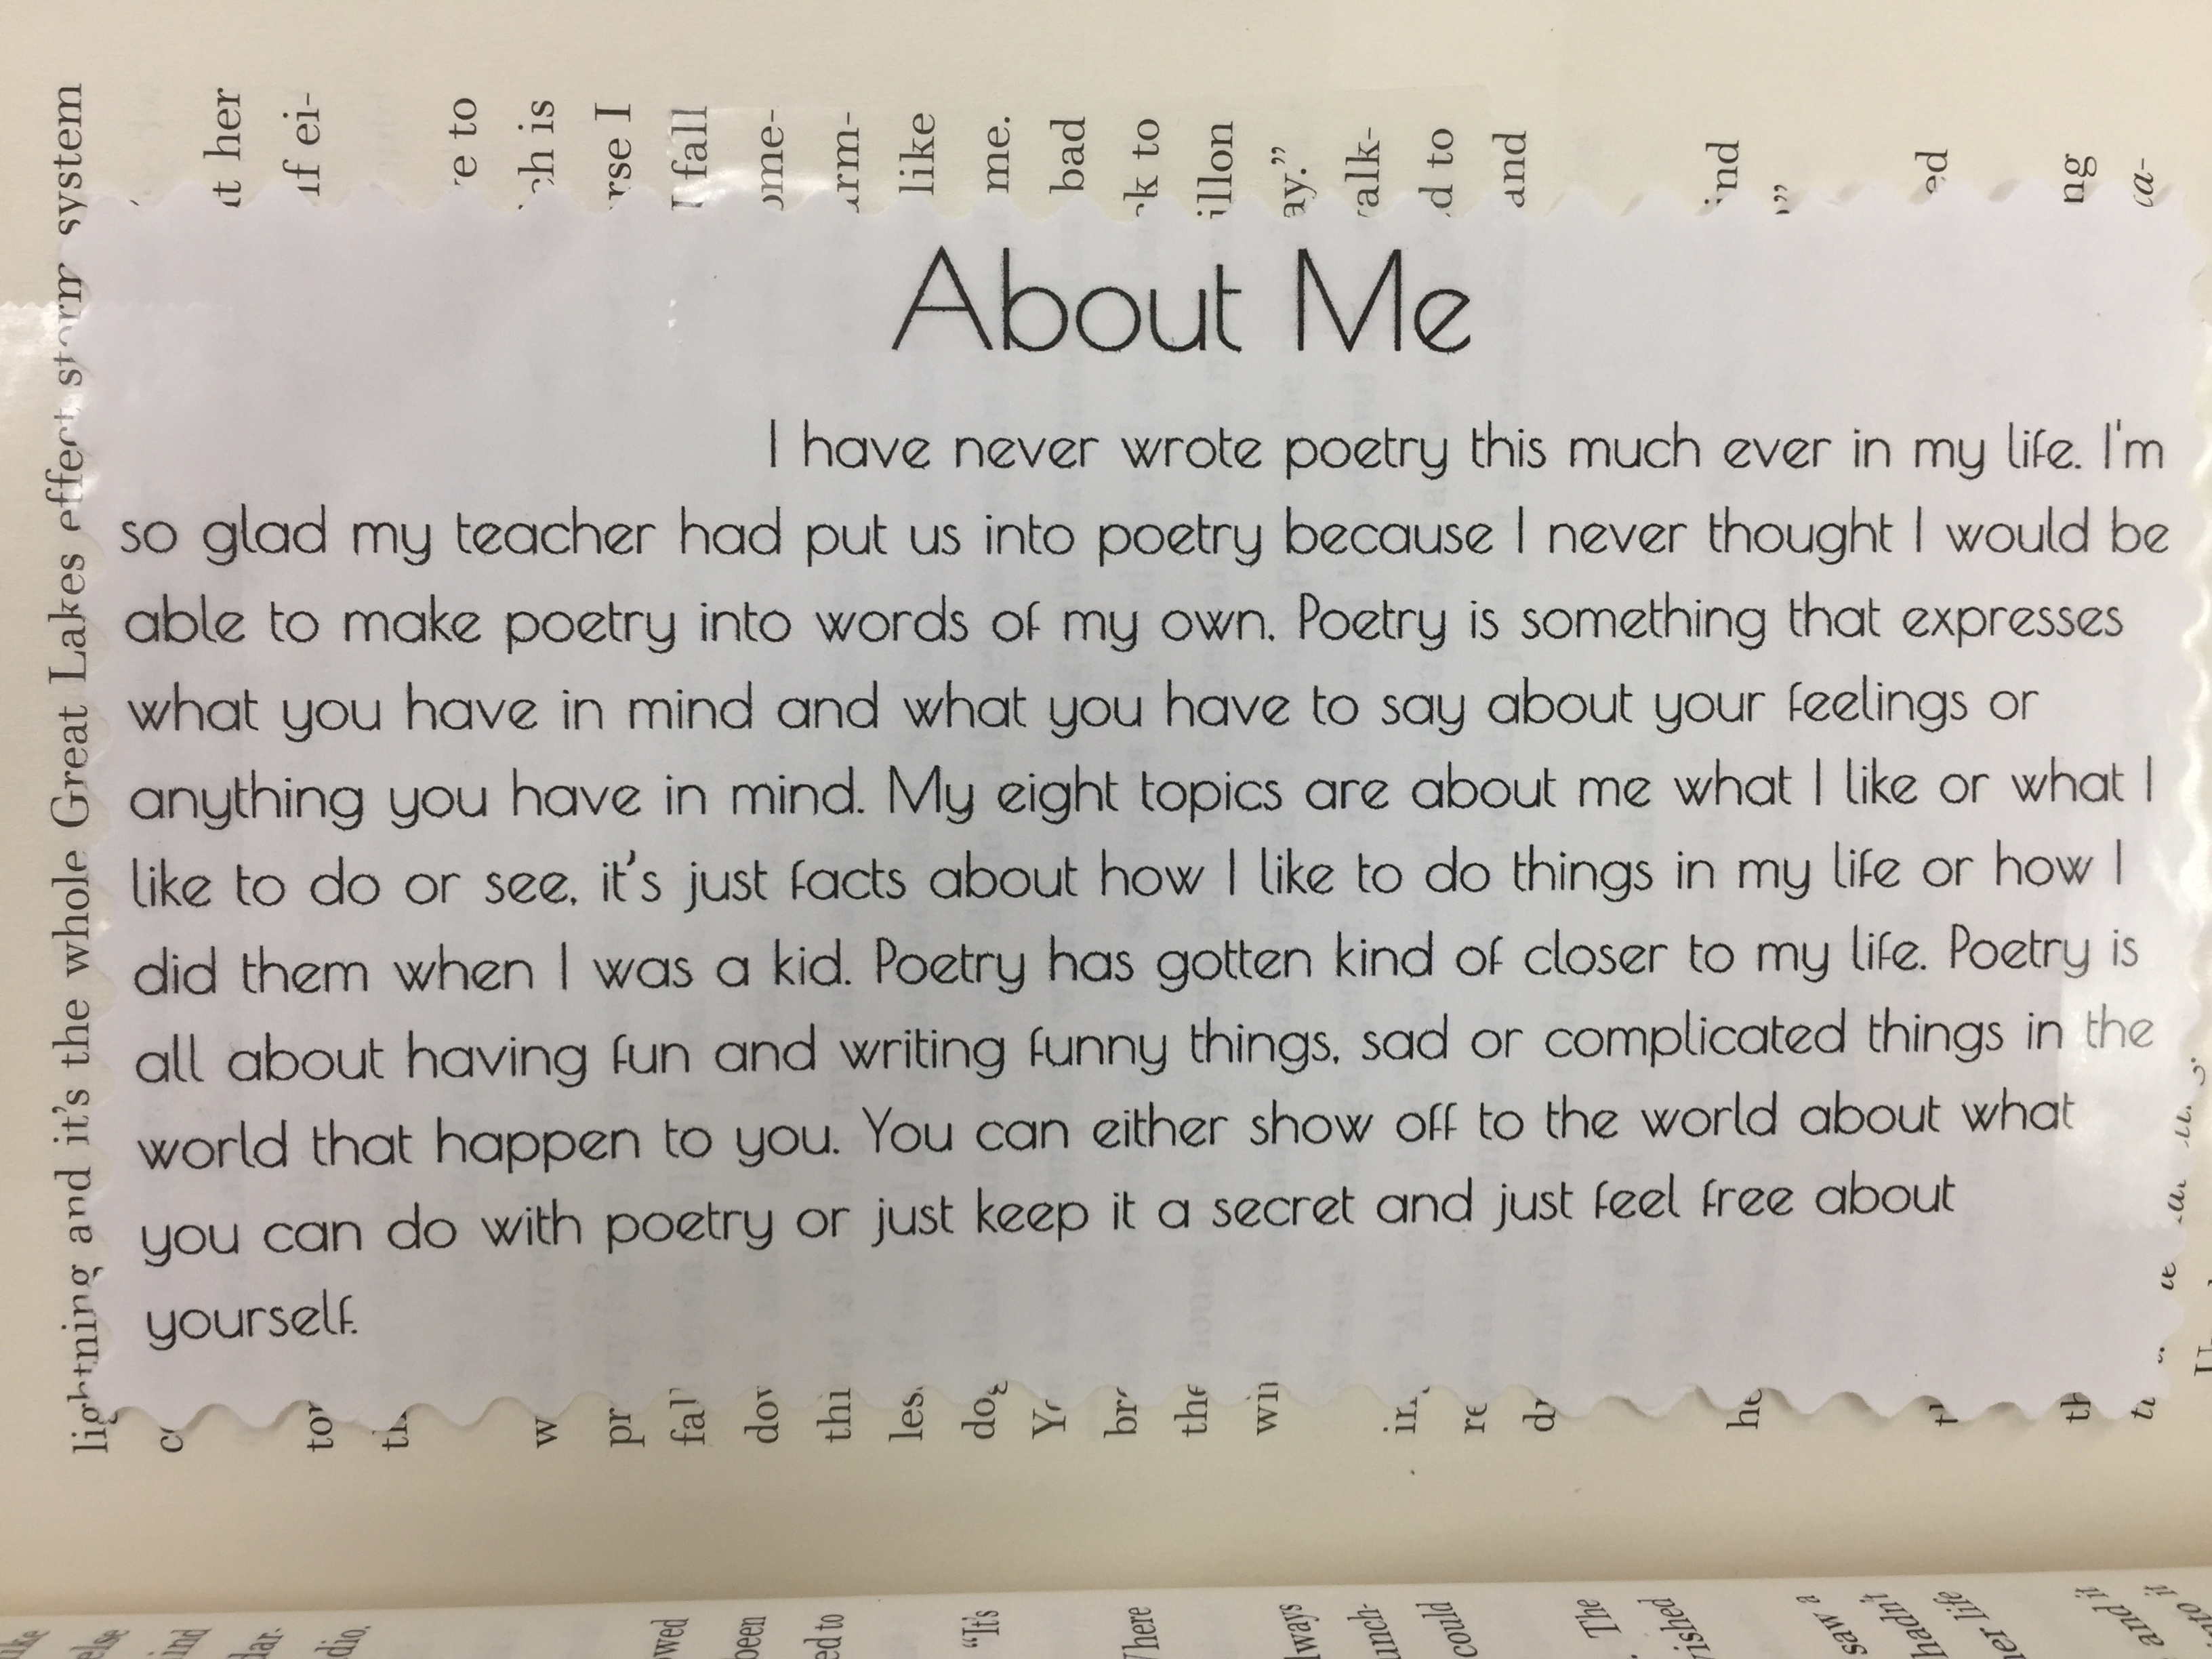 About Me
I have never wrote poetry this much ever in my life. I'm
so glad my teacher had put us into poetry because I never thought I would be
able to make poetry into words of my own. Poetry is something that expresses
what you have in mind and what you have to say about your feelings or
anything you have in mind. My eight topics are about me what I like or what I
like to do or see, it's just facts about how I like to do things in my life or how I
did them when I was a kid. Poetry has gotten kind of closer to my life. Poetry is
all about having fun and writing funny things, sad or complicated things in the
world that happen to you. You can either show off to the world about what
you can do with poetry or just keep it a secret and just feel free about
yourself.
lightning and it's the whole Great Lakes effect storm system
her
ei-
to
is
I
fall
like
me.
bad
to
to
and
"It's
could
The
saw a
hadn't
and it